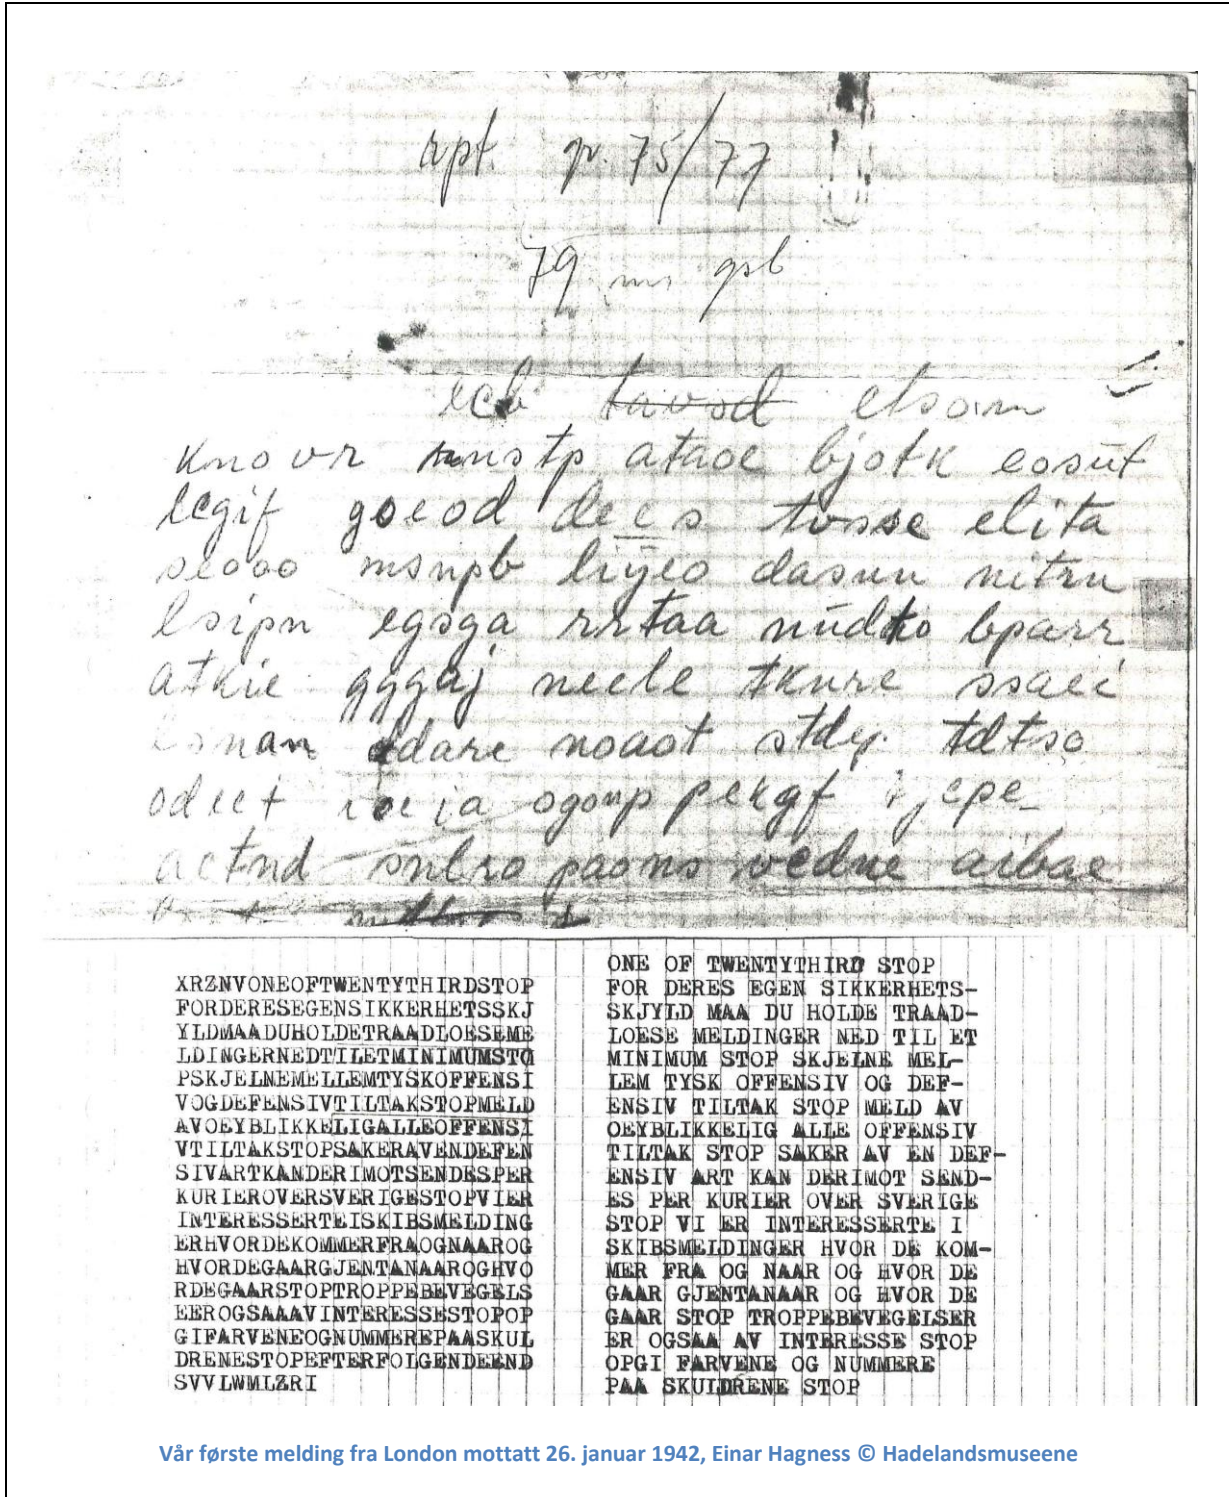 rpt gr. 75/77
79 nr
ecb tavod etsoim
knovr mnstp ataoe bjotk eosut
legif goeod dees tosse elita
seooo msnpb liyeo dasun nitru
lsipn egsga rrtaa nudto bparr
atkie gygaj neele tkure ssaei
lsnan edare noaot tdtso
odeet ogonp pekgf
actnd snlro paons vedne aibae
XRZNVONEOFTWENTYTHIRDSTOP
FORDERESEGENSIKKERHETSSKJ
YLDMAADUHOLDETRAADLOESEME
LDINGERNEDTILETMINIMUMSTO
PSKJELNEMELLEMTYSKOFFENSI
VOGDEFENSIVTILTAKSTOPMELD
AVOEYBLIKKELIGALLEOFFENSI
VTILTAKSTOPSAKERAVENDEFEN
SIVARTKANDERIMOTSENDESPER
KURIEROVERSVERIGESTOPVIER
INTERESSERTEISKIBSMELDING
ERHVORDEKOMMERFRAOGNAAROG
HVORDEGAARGJENTANAAROGHVO
RDEGAARSTOPTROPPEBEVEGELS
EEROGSAAAVINTERESSESTOPOP
GIFARVENEOGNUMMEREPAASKUL
DRENESTOPEFTERFOLGENDEEND
SVVLWMLZRI
ONE OF TWENTYTHIRD STOP
FOR DERES EGEN SIKKERHETS-
SKJYLD MAA DU HOLDE TRAAD-
LOESE MELDINGER NED TIL ET
MINIMUM STOP SKJELNE MEL-
LEM TYSK OFFENSIV OG DEF-
ENSIV TILTAK STOP MELD AV
OEYBLIKKELIG ALLE OFFENSIV
TILTAK STOP SAKER AV EN DEF-
ENSIV ART KAN DERIMOT SEND-
ES PER KURIER OVER SVERIGE
STOP VI ER INTERESSERTE I
SKIBSMELDINGER HVOR DE KOM-
MER FRA OG NAAR OG HVOR DE
GAAR GJENTANAAR OG HVOR DE
GAAR STOP TROPPEBEVEGELSER
ER OGSAA AV INTERESSE STOP
OPGI FARVENE OG NUMMERE
PAA SKULDRENE STOP
Vår første melding fra London mottatt 26. januar 1942, Einar Hagness © Hadelandsmuseene